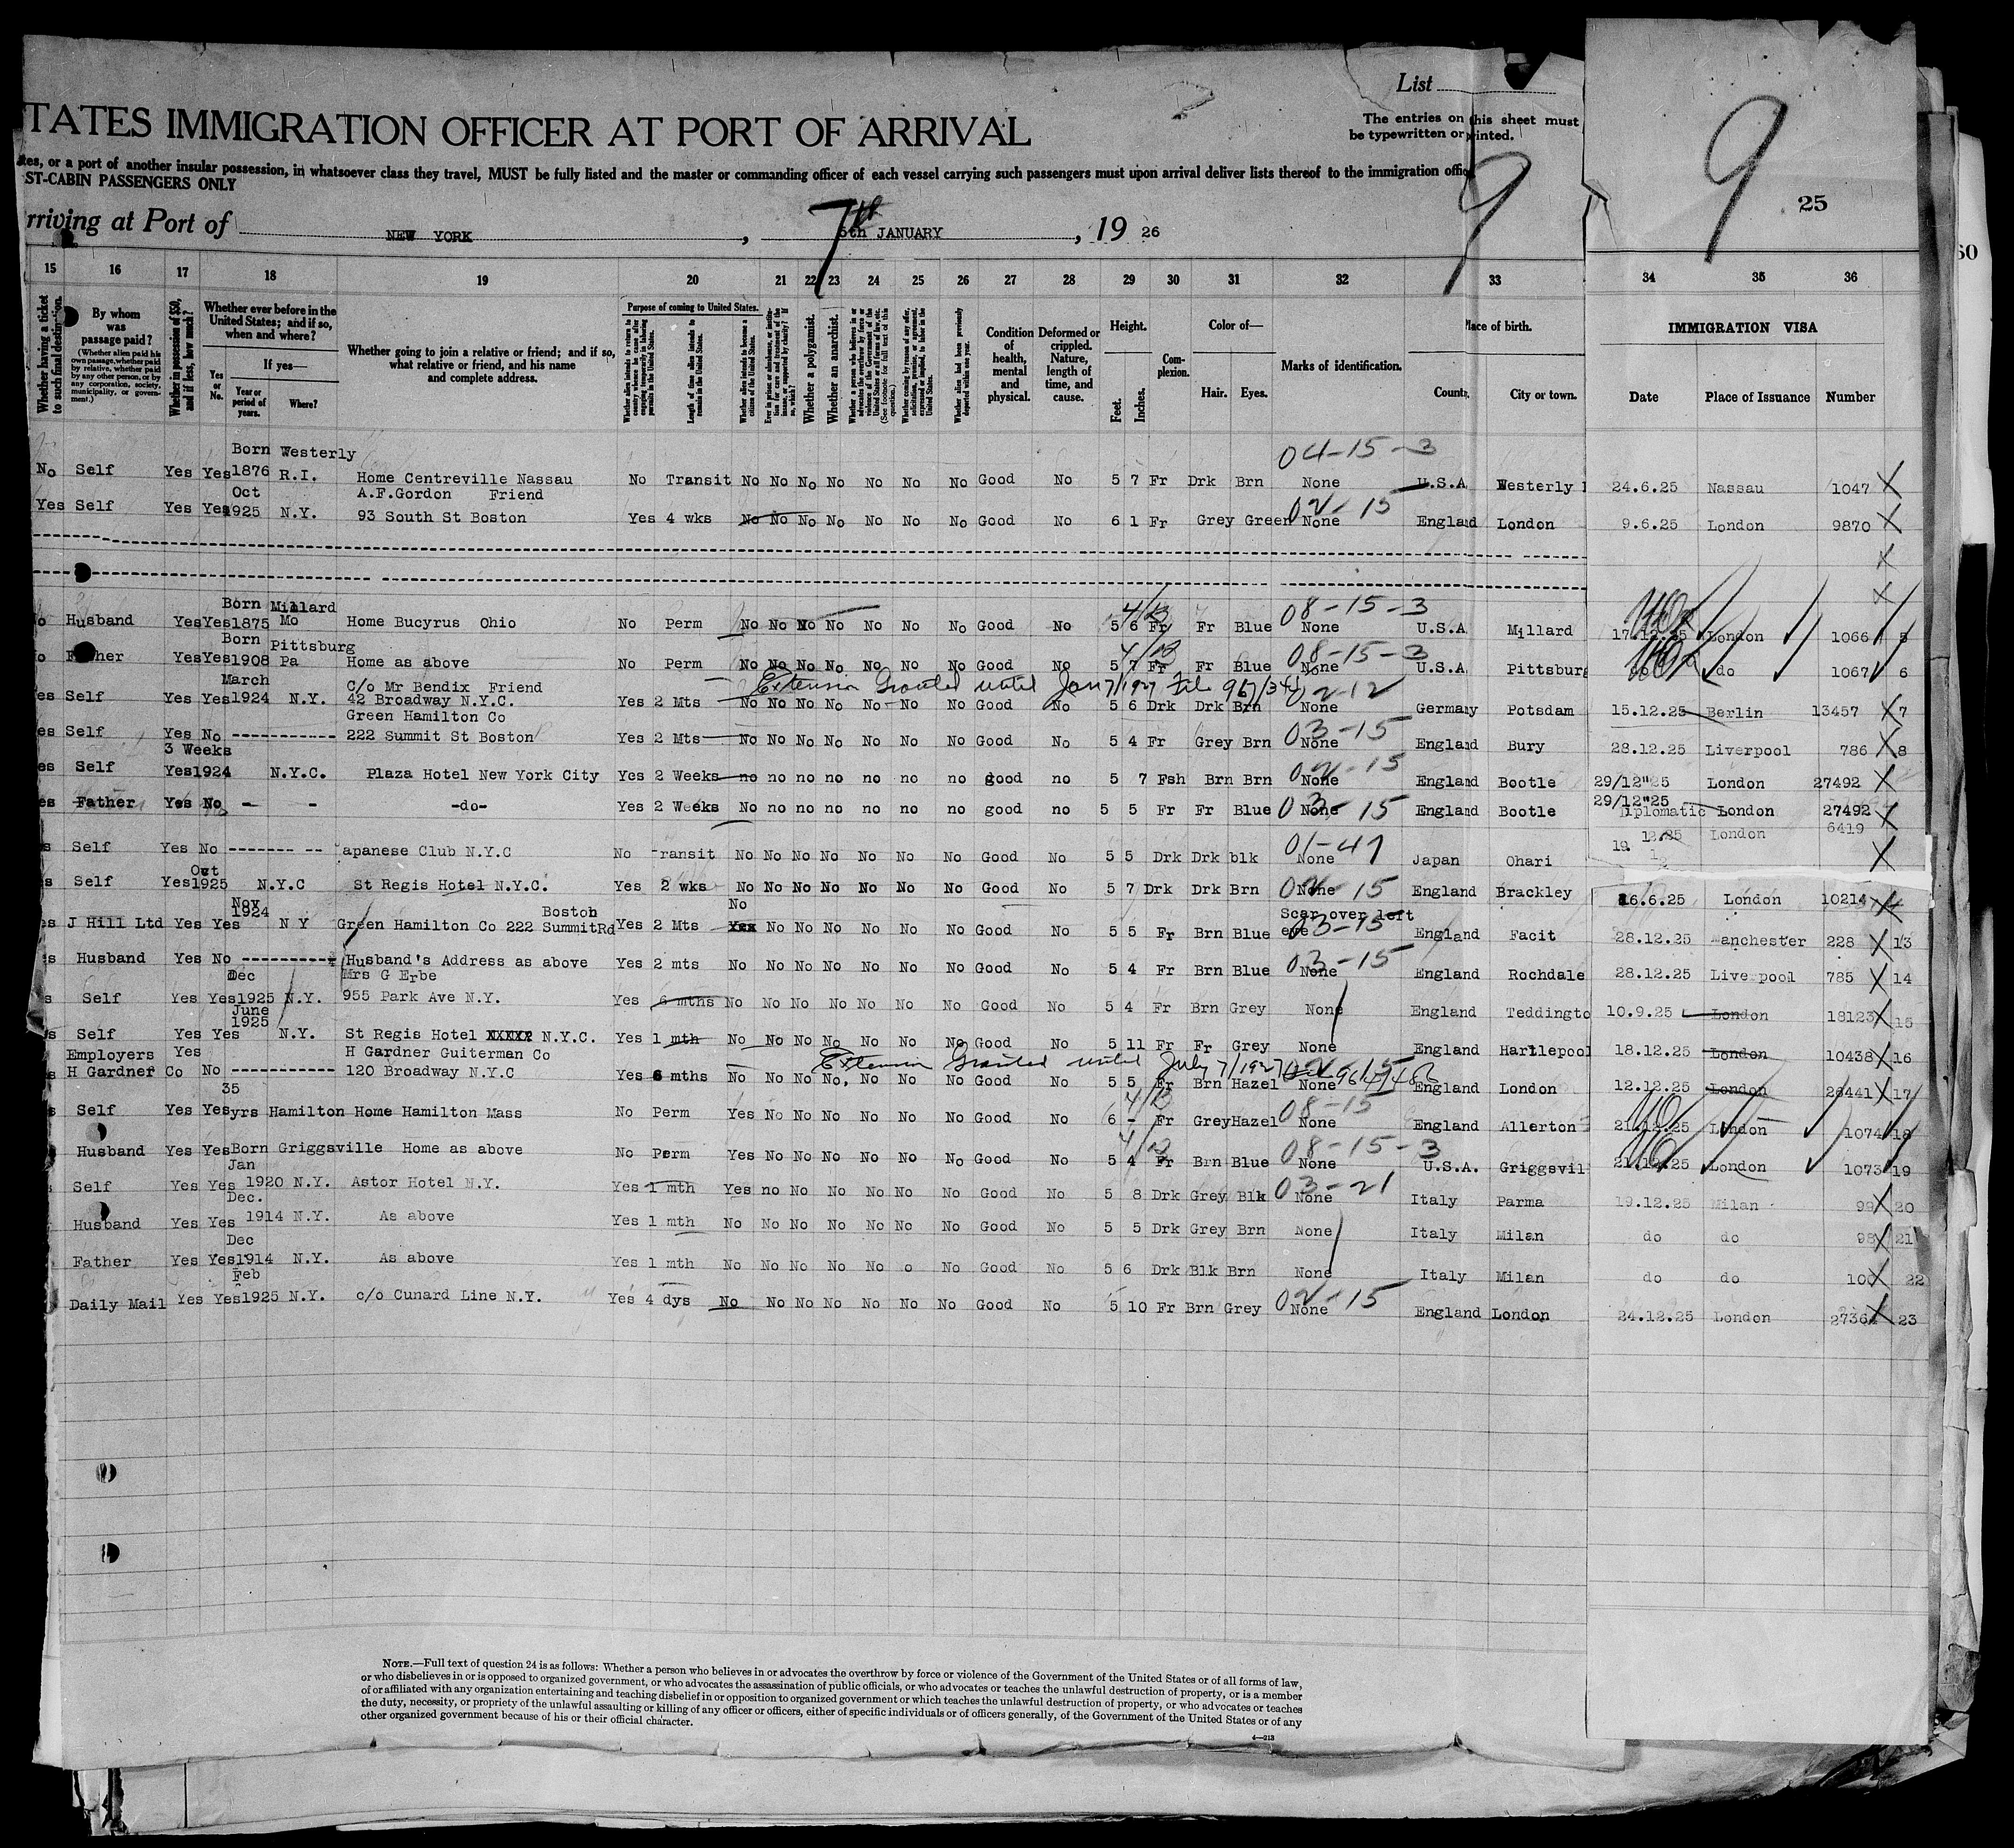 List
TATES IMMIGRATION OFFICER AT PORT OF ARRIVAL
The entries on this sheet must
be typewritten or printed.
9
9
25
tes, or a port of another insular possession, in whatsoever class they travel, MUST be fully listed and the master or commanding officer of each vessel carrying such passengers must upon arrival deliver lists thereof to the immigration offic
ST-CABIN PASSENGERS ONLY
rriving at Port of NEW YORK , 7th 6th JANUARY , 19 26
15 16 17 18 19 20 21 22 23 24 25 26 27 28 29 30 31 32 33 34 35 36
Whether having a ticket to such final destination.
By whom was passage paid?
(Whether alien paid his own passage, whether paid by relative, whether paid by any other person, or by any corporation, society, municipality, or government.)
Whether in possession of $50, and if less, how much?
Whether ever before in the United States; and if so, when and where?
Yes or No.
If yes—
Year or period of years.
Where?
Whether going to join a relative or friend; and if so, what relative or friend, and his name and complete address.
Purpose of coming to United States.
Whether alien intends to return to country whence he came after engaging temporarily in laboring pursuits in the United States.
Length of time alien intends to remain in the United States.
Whether alien intends to become a citizen of the United States.
Ever in prison or almshouse, or institution for care and treatment of the insane, or supported by charity? If so, which?
Whether a polygamist.
Whether an anarchist.
Whether a person who believes in or advocates the overthrow by force or violence of the Government of the United States or all forms of law, etc. (See footnote for full text of this question.)
Whether coming by reason of any offer, solicitation, promise, or agreement, expressed or implied, to labor in the United States.
Whether alien had been previously deported within one year.
Condition of health, mental and physical.
Deformed or crippled. Nature, length of time, and cause.
Height.
Feet. Inches.
Complexion.
Color of—
Hair. Eyes.
Marks of identification.
Place of birth.
Country. City or town.
IMMIGRATION VISA
Date Place of Issuance Number
Born Westerly 04-15-3
No Self Yes Yes 1876 R.I. Home Centreville Nassau No Transit No No No No No No No Good No 5 7 Fr Drk Brn None U.S.A Westerly 24.6.25 Nassau 1047 X
Oct A.F.Gordon Friend 02-15
Yes Self Yes Yes 1925 N.Y. 93 South St Boston Yes 4 wks No No No No No No No Good No 6 1 Fr Grey Green None England London 9.6.25 London 9870 X
X
X
Born Millard 4/13 08-15-3
o Husband Yes Yes 1875 Mo Home Bucyrus Ohio No Perm No No No No No No No Good No 5 6 Fr Fr Blue None U.S.A Millard 17.12.25 London 1066 5
Born Pittsburg 4/13 08-15-3
o Father Yes Yes 1908 Pa Home as above No Perm No No No No No No No Good No 5 7 Fr Fr Blue None U.S.A. Pittsburg do do 1067 6
March C/o Mr Bendix Friend Extension Granted until Jan 7/1927 02-12
es Self Yes Yes 1924 N.Y. 42 Broadway N.Y.C. Yes 2 Mts No No No No No No No Good No 5 6 Drk Drk Brn None Germany Potsdam 15.12.25 Berlin 13457 X 7
Green Hamilton Co 03-15
es Self Yes No ------------ 222 Summit St Boston Yes 2 Mts No No No No No No No Good No 5 4 Fr Grey Brn None England Bury 28.12.25 Liverpool 786 X 8
3 Weeks 02-15
es Self Yes 1924 N.Y.C. Plaza Hotel New York City Yes 2 Weeks no no no no no no no good no 5 7 Fsh Brn Brn None England Bootle 29/12"25 London 27492 X
29/12"25
es Father Yes No - - -do- Yes 2 Weeks No no no no no no no good no 5 5 Fr Fr Blue None 03-15 England Bootle Diplomatic London 27492 X
12.25 London 6419
s Self Yes No ------- -- apanese Club N.Y.C No ransit No No No No No No No Good No 5 5 Drk Drk blk None 01-47 Japan Ohari 19 X
Oct
s Self Yes 1925 N.Y.C St Regis Hotel N.Y.C. Yes 2 wks No No No No No No No Good No 5 7 Drk Drk Brn None 02-15 England Brackley 16.6.25 London 10214 X
Nov 1924 Boston No Scar over left
s J Hill Ltd Yes Yes N Y Green Hamilton Co 222 Summit Rd Yes 2 Mts Yes No No No No No No Good No 5 5 Fr Brn Blue eye 03-15 England Facit 28.12.25 Manchester 228 X 13
s Husband Yes No ---------- Husband's Address as above Yes 2 mts No No No No No No No Good No 5 4 Fr Brn Blue None 03-15 England Rochdale 28.12.25 Liverpool 785 X 14
Dec Mrs G Erbe
s Self Yes Yes 1925 N.Y. 955 Park Ave N.Y. Yes 6 mths No No No No No No No Good No 5 4 Fr Brn Grey None England Teddingto 10.9.25 London 18123 X 15
June 1925
s Self Yes Yes N.Y. St Regis Hotel XXXXX N.Y.C. Yes 1 mth No No No No No No No Good No 5 11 Fr Fr Grey None England Hartlepool 18.12.25 London 10438 X 16
Employers Yes H Gardner Guiterman Co Extension Granted until July 7/1927
s H Gardner Co No ----------- 120 Broadway N.Y.C Yes 6 mths No No No No. No No No Good No 5 5 Fr Brn Hazel None England London 12.12.25 London 26441 X 17
35 4/13 08-15
s Self Yes Yes yrs Hamilton Home Hamilton Mass No Perm Yes No No No No No No Good No 6 - Fr Grey Hazel None England Allerton 21.12.25 London 1074 18
4/13 08-15-3
Husband Yes Yes Born Griggsville Home as above No Perm Yes No No No No No No Good No 5 4 Fr Brn Blue None U.S.A. Griggsvil 21.12.25 London 1073 19
Jan 03-21
Self Yes Yes 1920 N.Y. Astor Hotel N.Y. Yes 1 mth Yes no No No No No No Good No 5 8 Drk Grey Blk None Italy Parma 19.12.25 Milan 99 X 20
Dec.
Husband Yes Yes 1914 N.Y. As above Yes 1 mth No No No No No No No Good No 5 5 Drk Grey Brn None Italy Milan do do 98 X 21
Dec
Father Yes Yes 1914 N.Y. As above Yes 1 mth No No No No No o No Good No 5 6 Drk Blk Brn None Italy Milan do do 100 X 22
Feb 02-15
Daily Mail Yes Yes 1925 N.Y. c/o Cunard Line N.Y. Yes 4 dys No No No No No No No Good No 5 10 Fr Brn Grey None England London 24.12.25 London 2736 X 23
NOTE.—Full text of question 24 is as follows: Whether a person who believes in or advocates the overthrow by force or violence of the Government of the United States or of all forms of law,
or who disbelieves in or is opposed to organized government, or who advocates the assassination of public officials, or who advocates or teaches the unlawful destruction of property, or is a member
of or affiliated with any organization entertaining and teaching disbelief in or opposition to organized government or which teaches the unlawful destruction of property, or who advocates or teaches
the duty, necessity, or propriety of the unlawful assaulting or killing of any officer or officers, either of specific individuals or of officers generally, of the Government of the United States or of any
other organized government because of his or their official character.
4—213